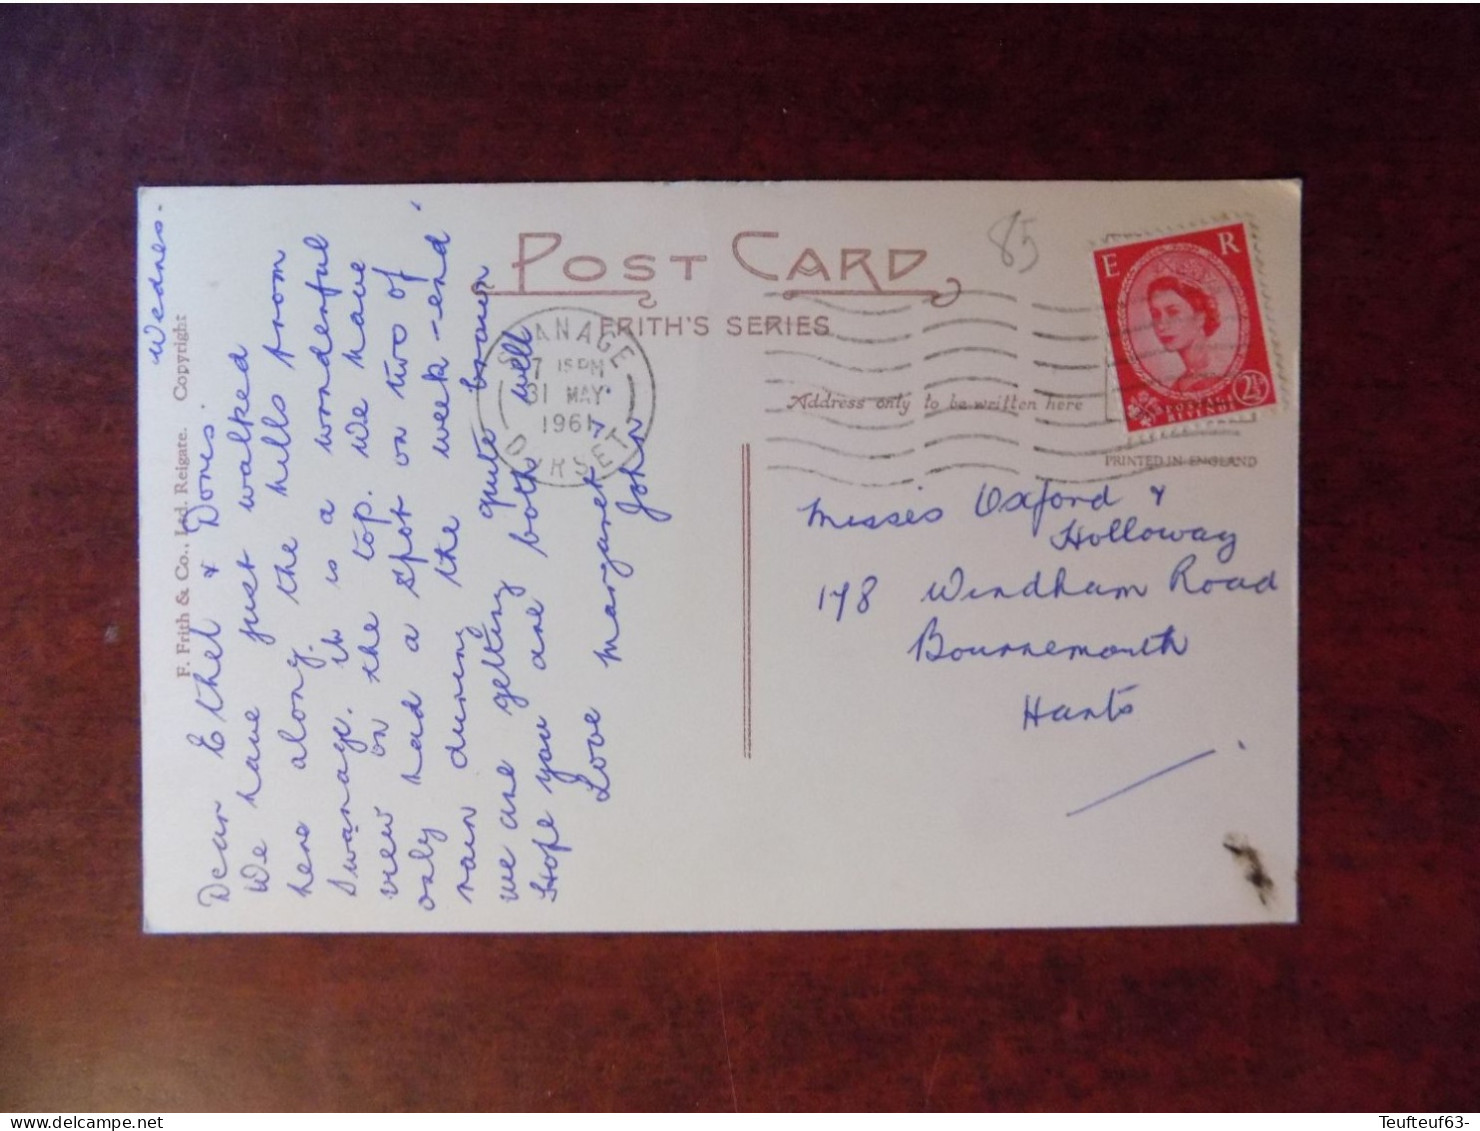 POST CARD
FRITH'S SERIES
85
E R
2½
POSTAGE
REVENUE
SWANAGE
7 15 PM
31 MAY
1961
DORSET
Address only to be written here
PRINTED IN ENGLAND
F. Frith & Co., Ltd. Reigate. Copyright
Wednes.
Dear Ethel & Doris.
We have just walked
here along the hills from
Swanage. It is a wonderful
view on the top. We have
only had a spot on two of
rain during the week-end.
we are getting quite brown
Hope you are both well
Love Margaret &
John
Misses Oxford &
Holloway
178 Windham Road
Bournemouth
Hants
Teufteuf63-